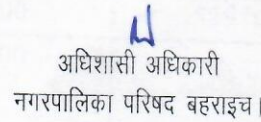 अधिशासी अधिकारी
नगरपालिका परिषद बहराइच।